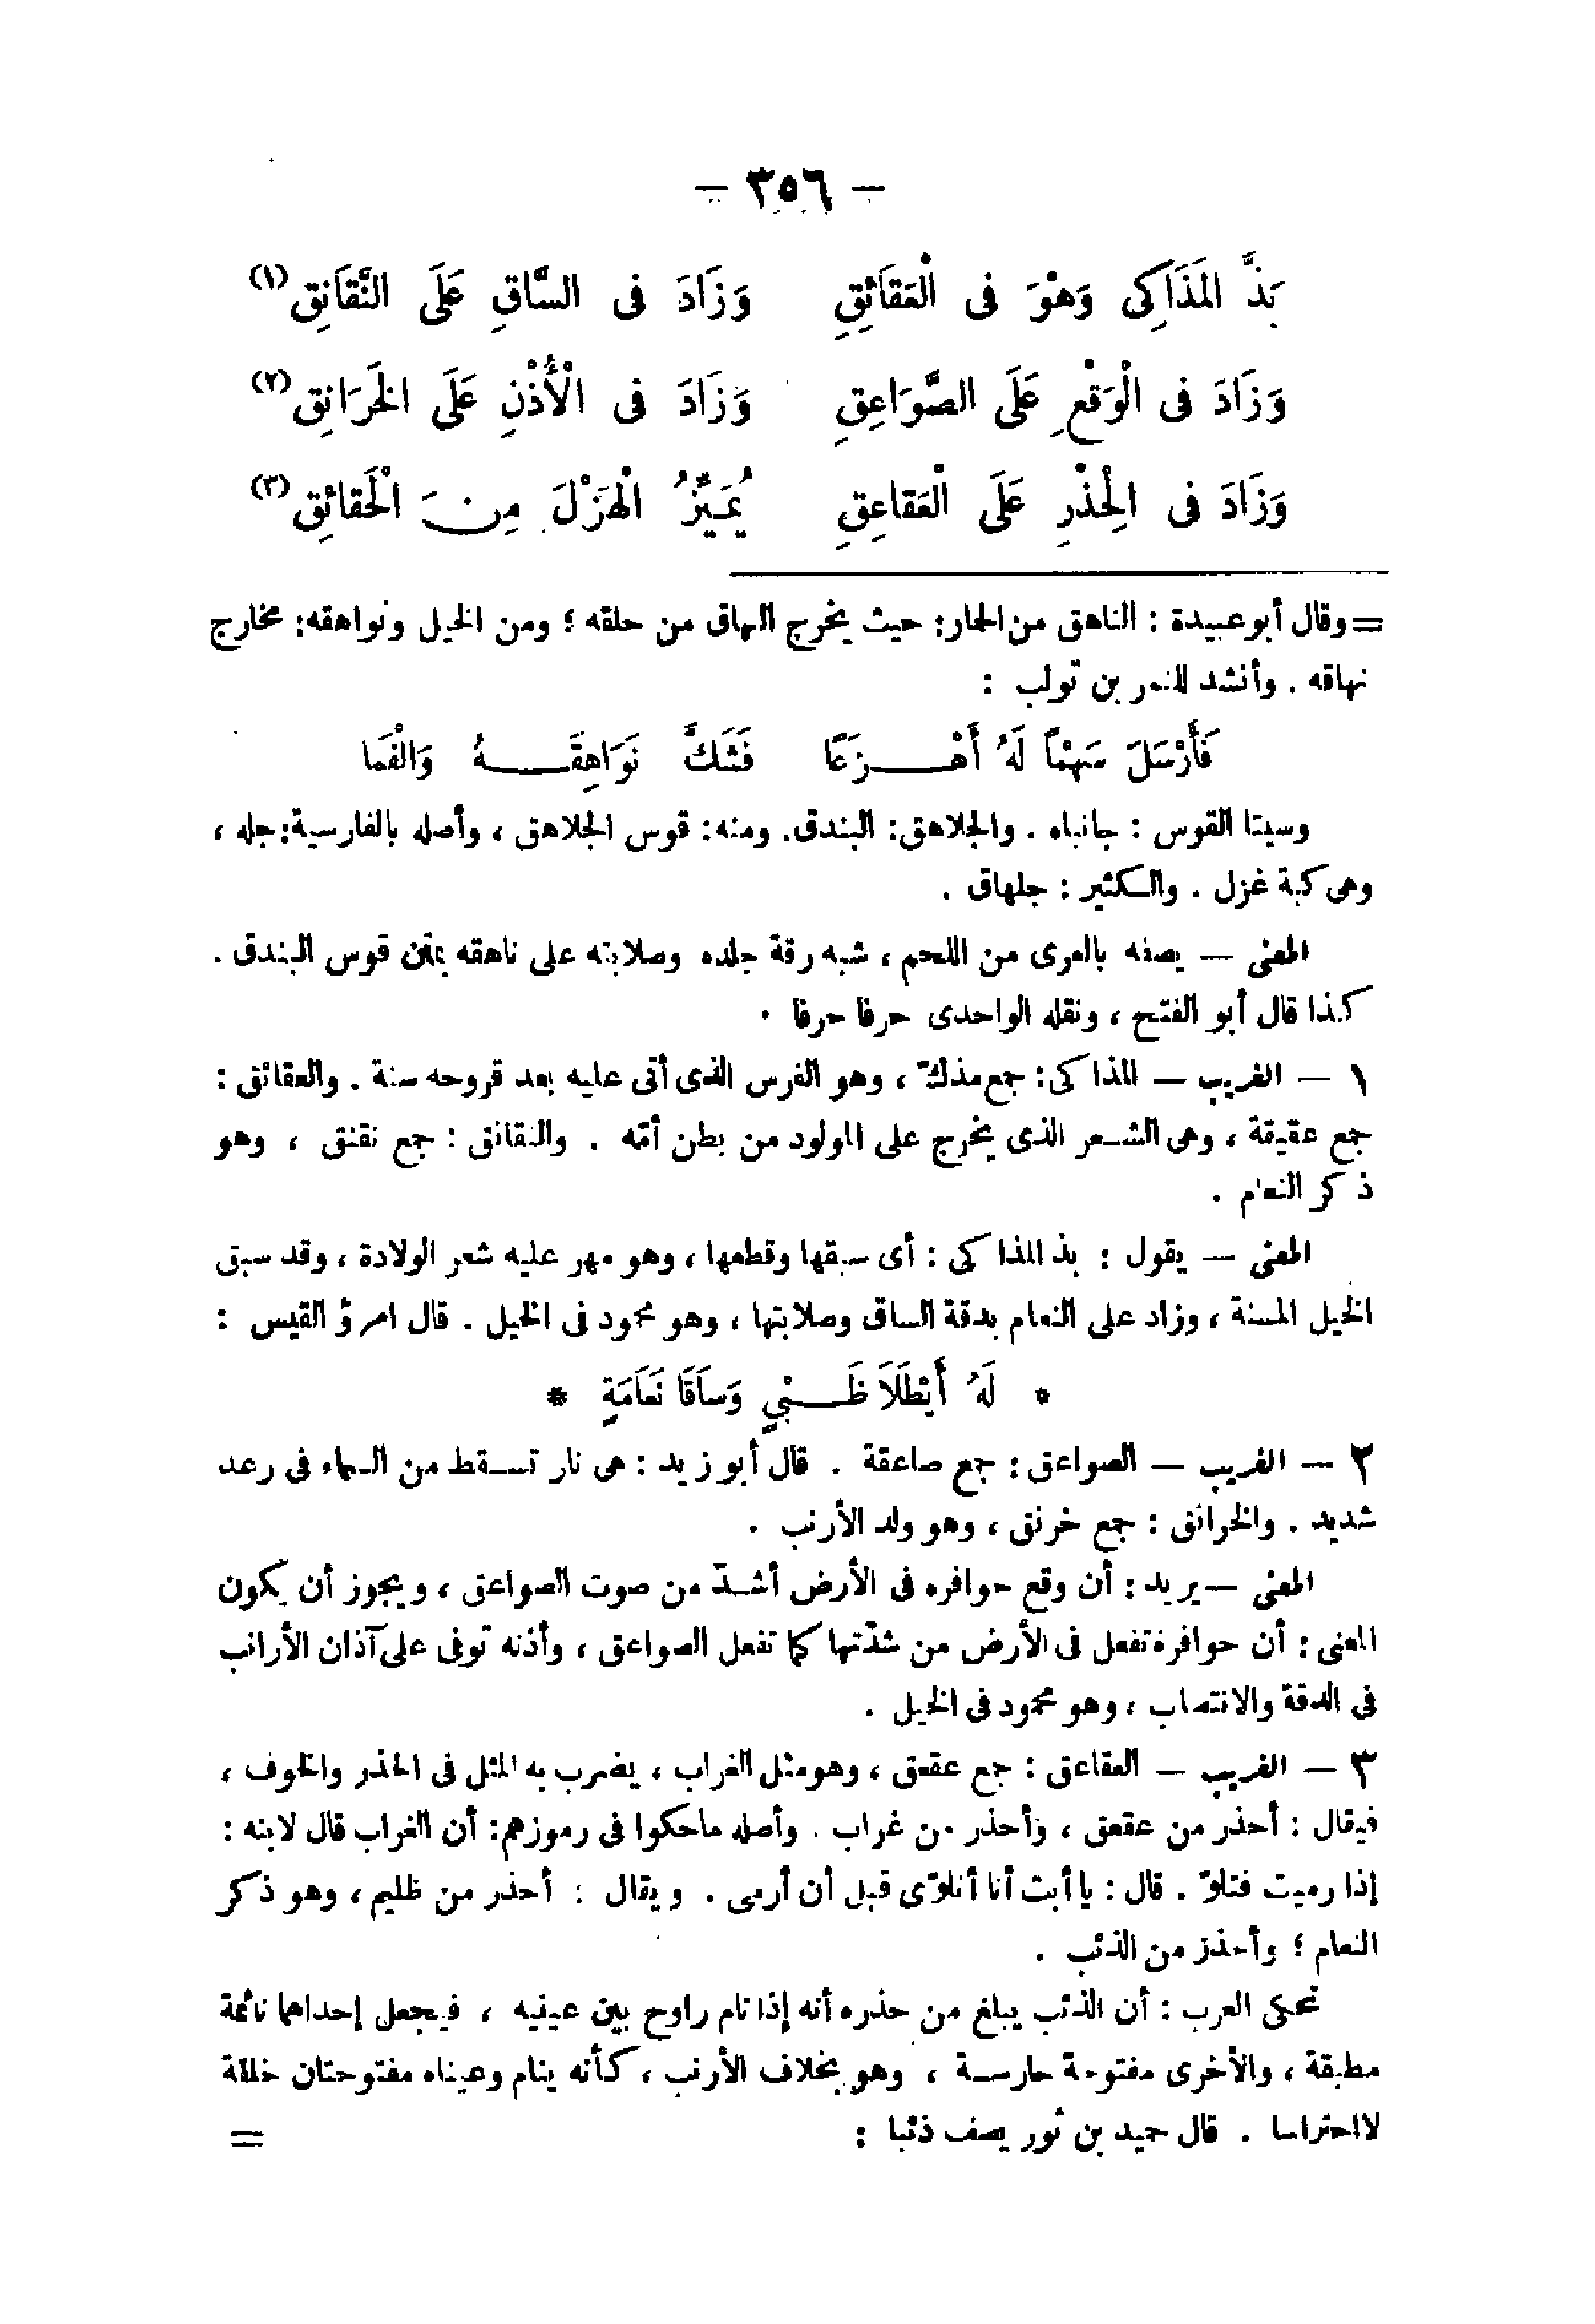 — ٣٥٦ —
بَذَّ المَذَاكِى وَهْوَ فى الْعَقَائِقِ وَزَادَ فى السَّاقِ عَلَى النَّقَانِقِ (١)
وَزَادَ فى الْوَقْعِ عَلَى الصَّوَاعِقِ وَزَادَ فى الْأُذْنِ عَلَى الخَرَانِقِ (٢)
وَزَادَ فى الْحِذْرِ عَلَى الْعَقاعِقِ يُمَيِّزُ الْهَزْلَ مِنَ الْحَقائِقِ (٣)
= وقال أبو عبيدة : الناهق من الحمار: حيث يخرج النهاق من حلقه ؛ ومن الخيل ونواهقه: مخارج
نهاقه . وأنشد للنمر بن تولب :
فَأَرْسَلَ سَهْمًا لَهُ أَهْـزَعًا فَشَكَّ نَوَاهِقَـهُ وَالْفَمَا
وسيتا القوس : جانباه . والجلاهق: البندق. ومنه: قوس الجلاهق ، وأصله بالفارسية: جله ،
وهى كبة غزل . والكثير : جلهاق .
المعنى — يصفه بالعرى من اللحم ، شبه رقة جلده وصلابته على ناهقه بمتن قوس البندق .
كذا قال أبو الفتح ، ونقله الواحدى حرفا حرفا .
١ — الغريب — المذاكى : جمع مذكّ ، وهو الفرس الذى أتى عليه بعد قروحه سنة . والعقائق :
جمع عقيقة ، وهى الشعر الذى يخرج على المولود من بطن أمّه . والنقانق : جمع نقنق ، وهو
ذكر النعام .
المعنى — يقول : بذ المذاكى : أى سبقها وقطعها ، وهو مهر عليه شعر الولادة ، وقد سبق
الخيل المسنة ، وزاد على النعام بدقة الساق وصلابتها ، وهو محمود فى الخيل . قال امرؤ القيس :
* لَهُ أَيْطَلاَ ظَـبْيٍ وَسَاقَا نَعَامَةٍ *
٢ — الغريب — الصواعق : جمع صاعقة . قال أبو زيد : هى نار تسقط من السماء فى رعد
شديد . والخرانق : جمع خرنق ، وهو ولد الأرنب .
المعنى — يريد : أن وقع حوافره فى الأرض أشدّ من صوت الصواعق ، ويجوز أن يكون
المعنى : أن حوافره تفعل فى الأرض من شدّتها كما تفعل الصواعق ، وأذنه توفى على آذان الأرانب
فى الدقة والانتصاب ، وهو محمود فى الخيل .
٣ — الغريب — العقاعق : جمع عقعق ، وهو مثل الغراب ، يضرب به المثل فى الحذر والخوف ،
فيقال : أحذر من عقعق ، وأحذر من غراب . وأصله ماحكوا فى رموزهم: أن الغراب قال لابنه :
إذا رميت فتلوّ . قال : يا أبت أنا أتلوّى قبل أن أرمى . ويقال : أحذر من ظليم ، وهو ذكر
النعام ؛ وأحذر من الذئب .
تحكى العرب : أن الذئب يبلغ من حذره أنه إذا نام راوح بين عينيه ، فيجعل إحداهما نائمة
مطبقة ، والأخرى مفتوحة حارسة ، وهو بخلاف الأرنب ، كأنه ينام وعيناه مفتوحتان خلقة
لا احتراسا . قال حميد بن ثور يصف ذئبا : =